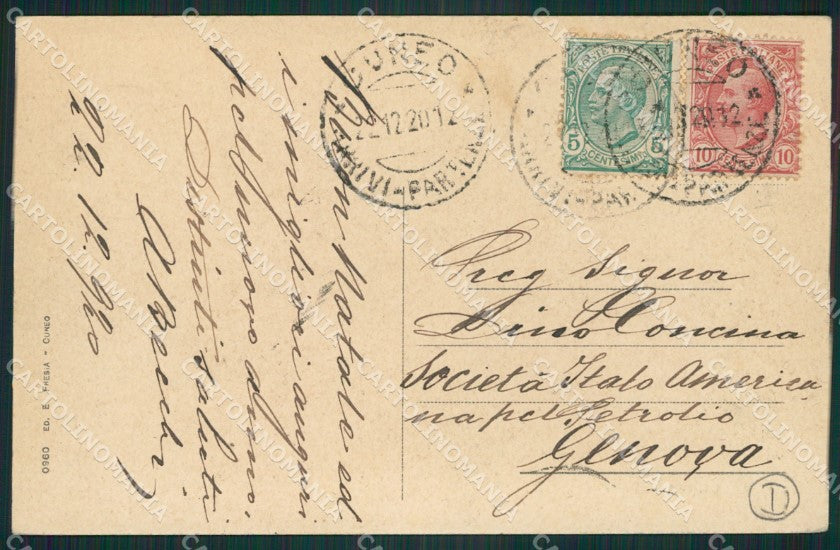 Buon Natale ed
i migliori auguri
pel nuovo anno.
Distinti saluti
22.12.920
0960 ED. E. FRESIA - CUNEO
CUNEO
22.12.20.12
ARRIVI-PARTENZE
POSTE ITALIANE
5 CENTESIMI 5
POSTE ITALIANE
10 CENTESIMI 10
Preg Signor
Concina
Società Italo America
na pel Petrolio
Genova
D
CARTOLINOMANIA